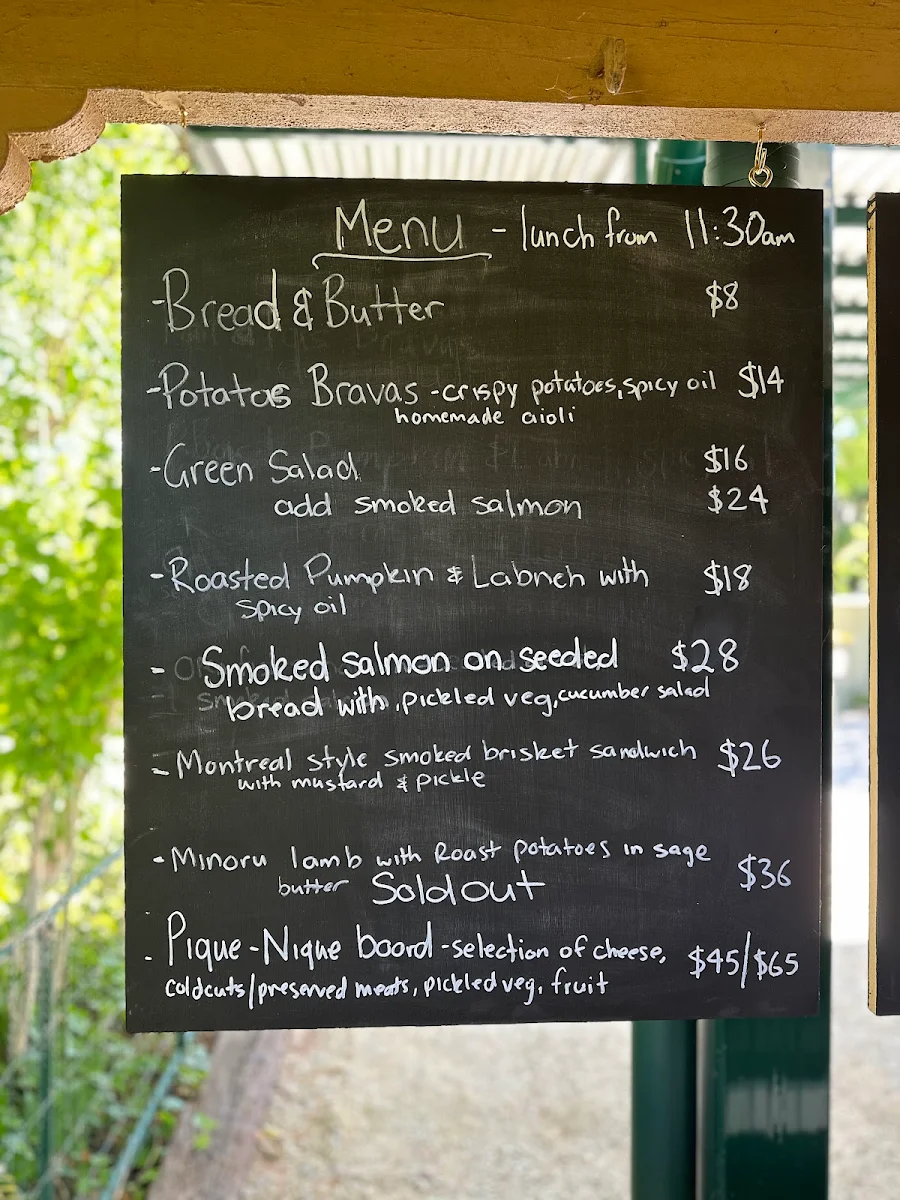 Menu - lunch from 11:30am
-Bread & Butter $8
-Potatoes Bravas -crispy potatoes, spicy oil $14
homemade aioli
-Green Salad $16
add smoked salmon $24
-Roasted Pumpkin & Labneh with $18
spicy oil
- Smoked salmon on seeded $28
bread with, pickled veg, cucumber salad
- Montreal style smoked brisket sandwich $26
with mustard & pickle
- Minoru lamb with Roast potatoes in sage
butter Sold out $36
- Pique-Nique board -selection of cheese, $45/$65
coldcuts/preserved meats, pickled veg, fruit